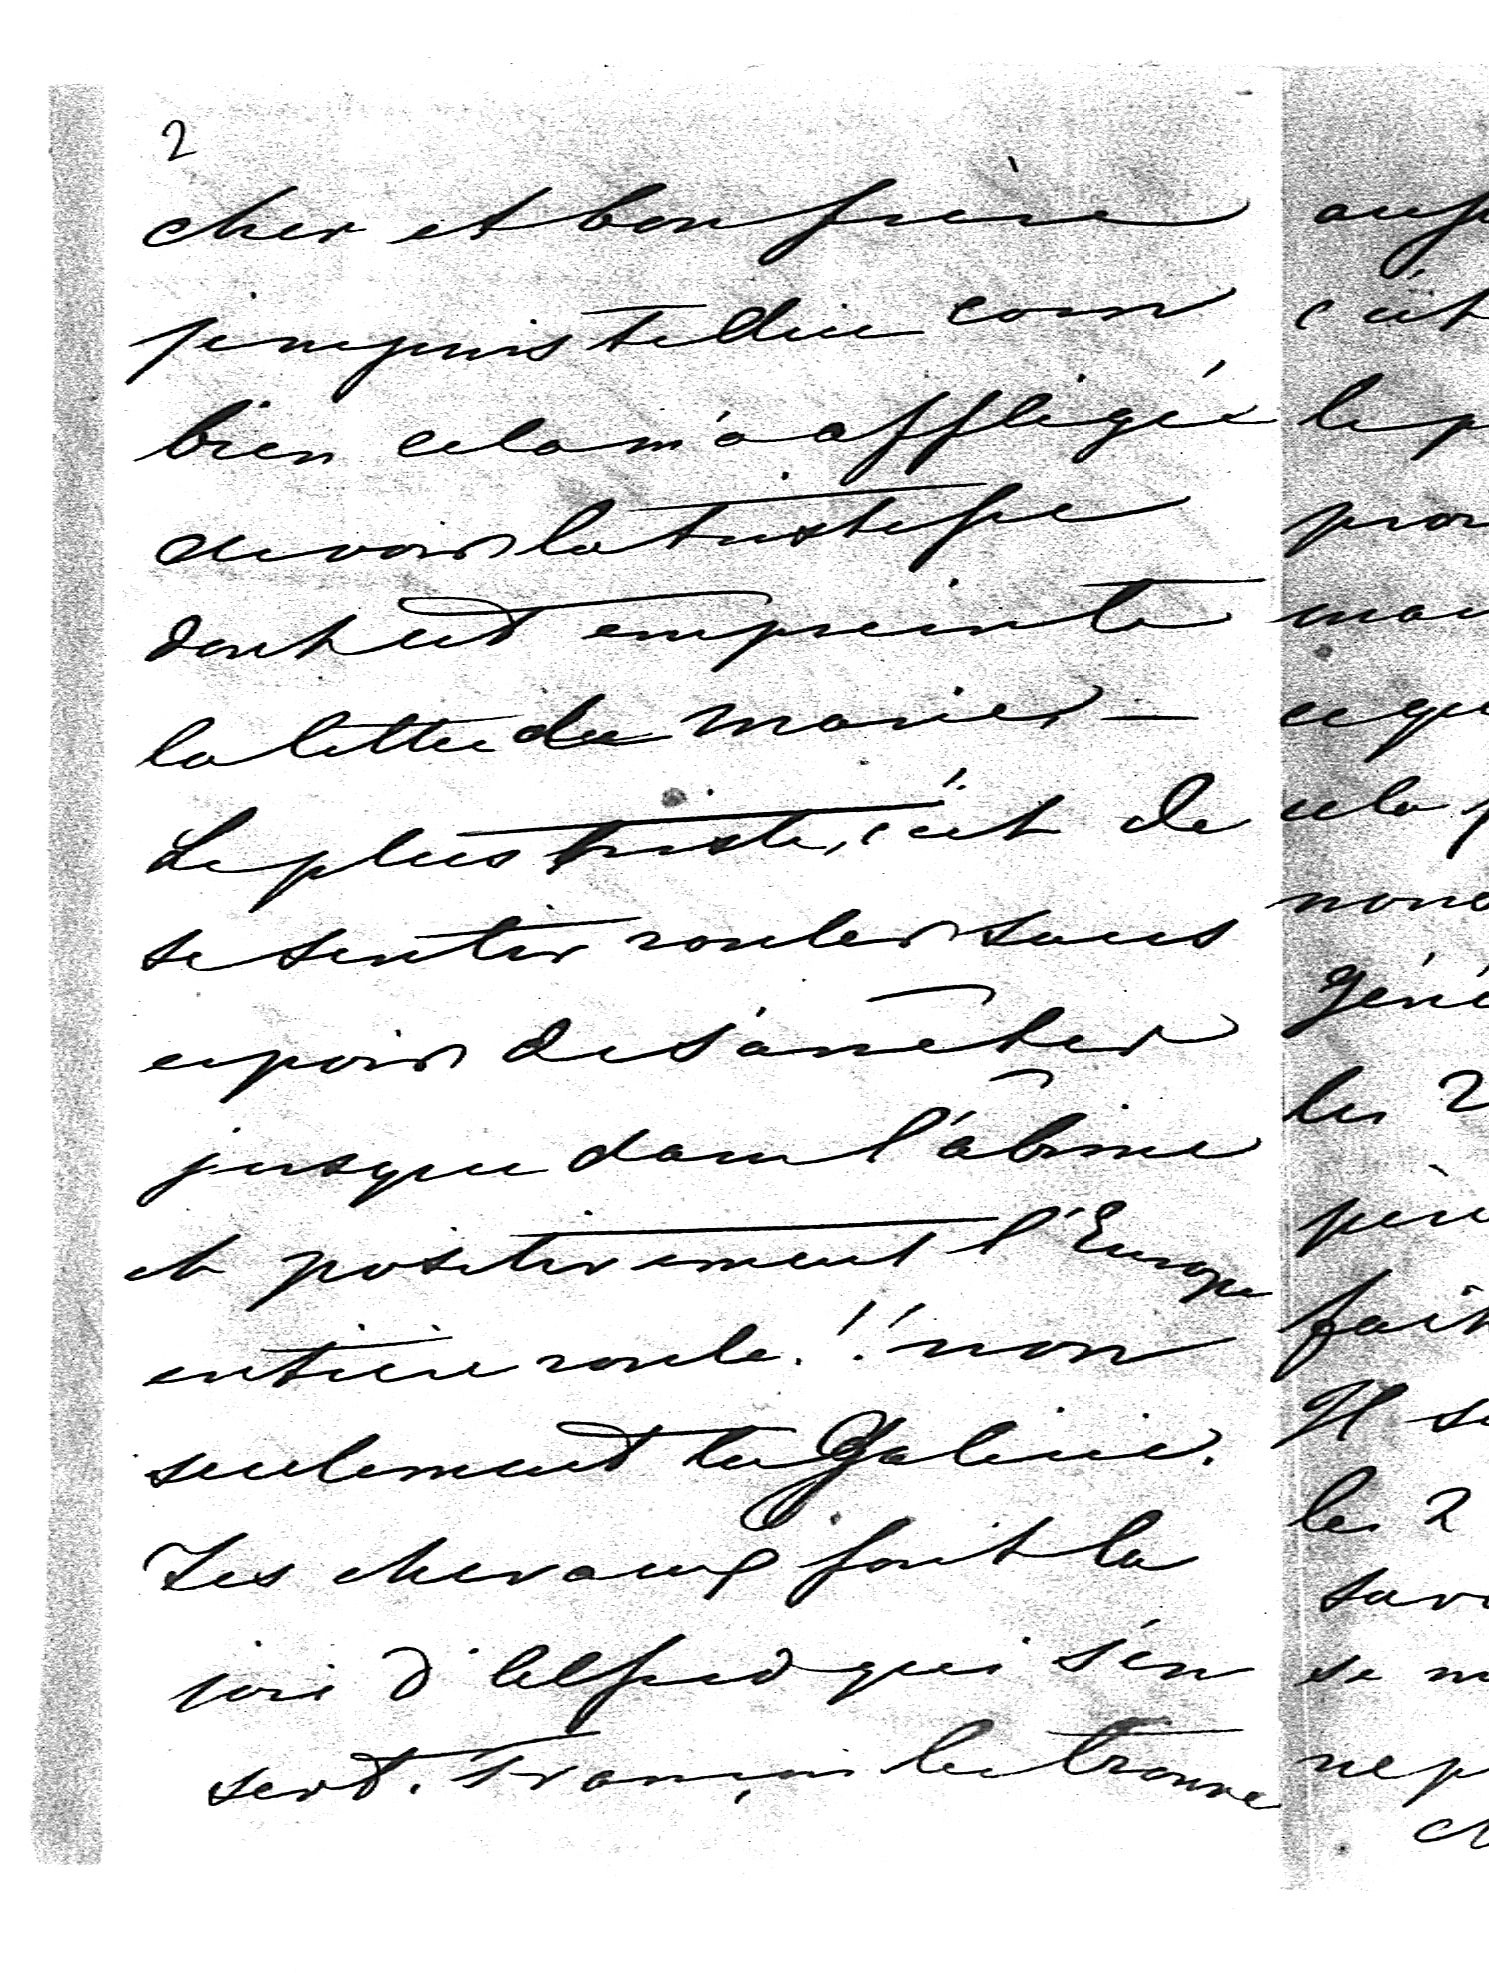 2
cher et bon frère
je ne puis te dire com
bien cela m'a affligée
de voir la tristesse
dont est empreinte
la lettre de Marie –
Le plus triste, c'est de
se sentir rouler sans
espoir de s'arrêter
jusque dans l'abîme
et positivement l'Europe
entière roule!! non
seulement ta Galicie.
Tes chevaux font la
joie d'Alfred qui s'en
sert. François les trouve
c'est
le p
ce que
cela p
géné
les 2
fait
Il se
les 2
ne p